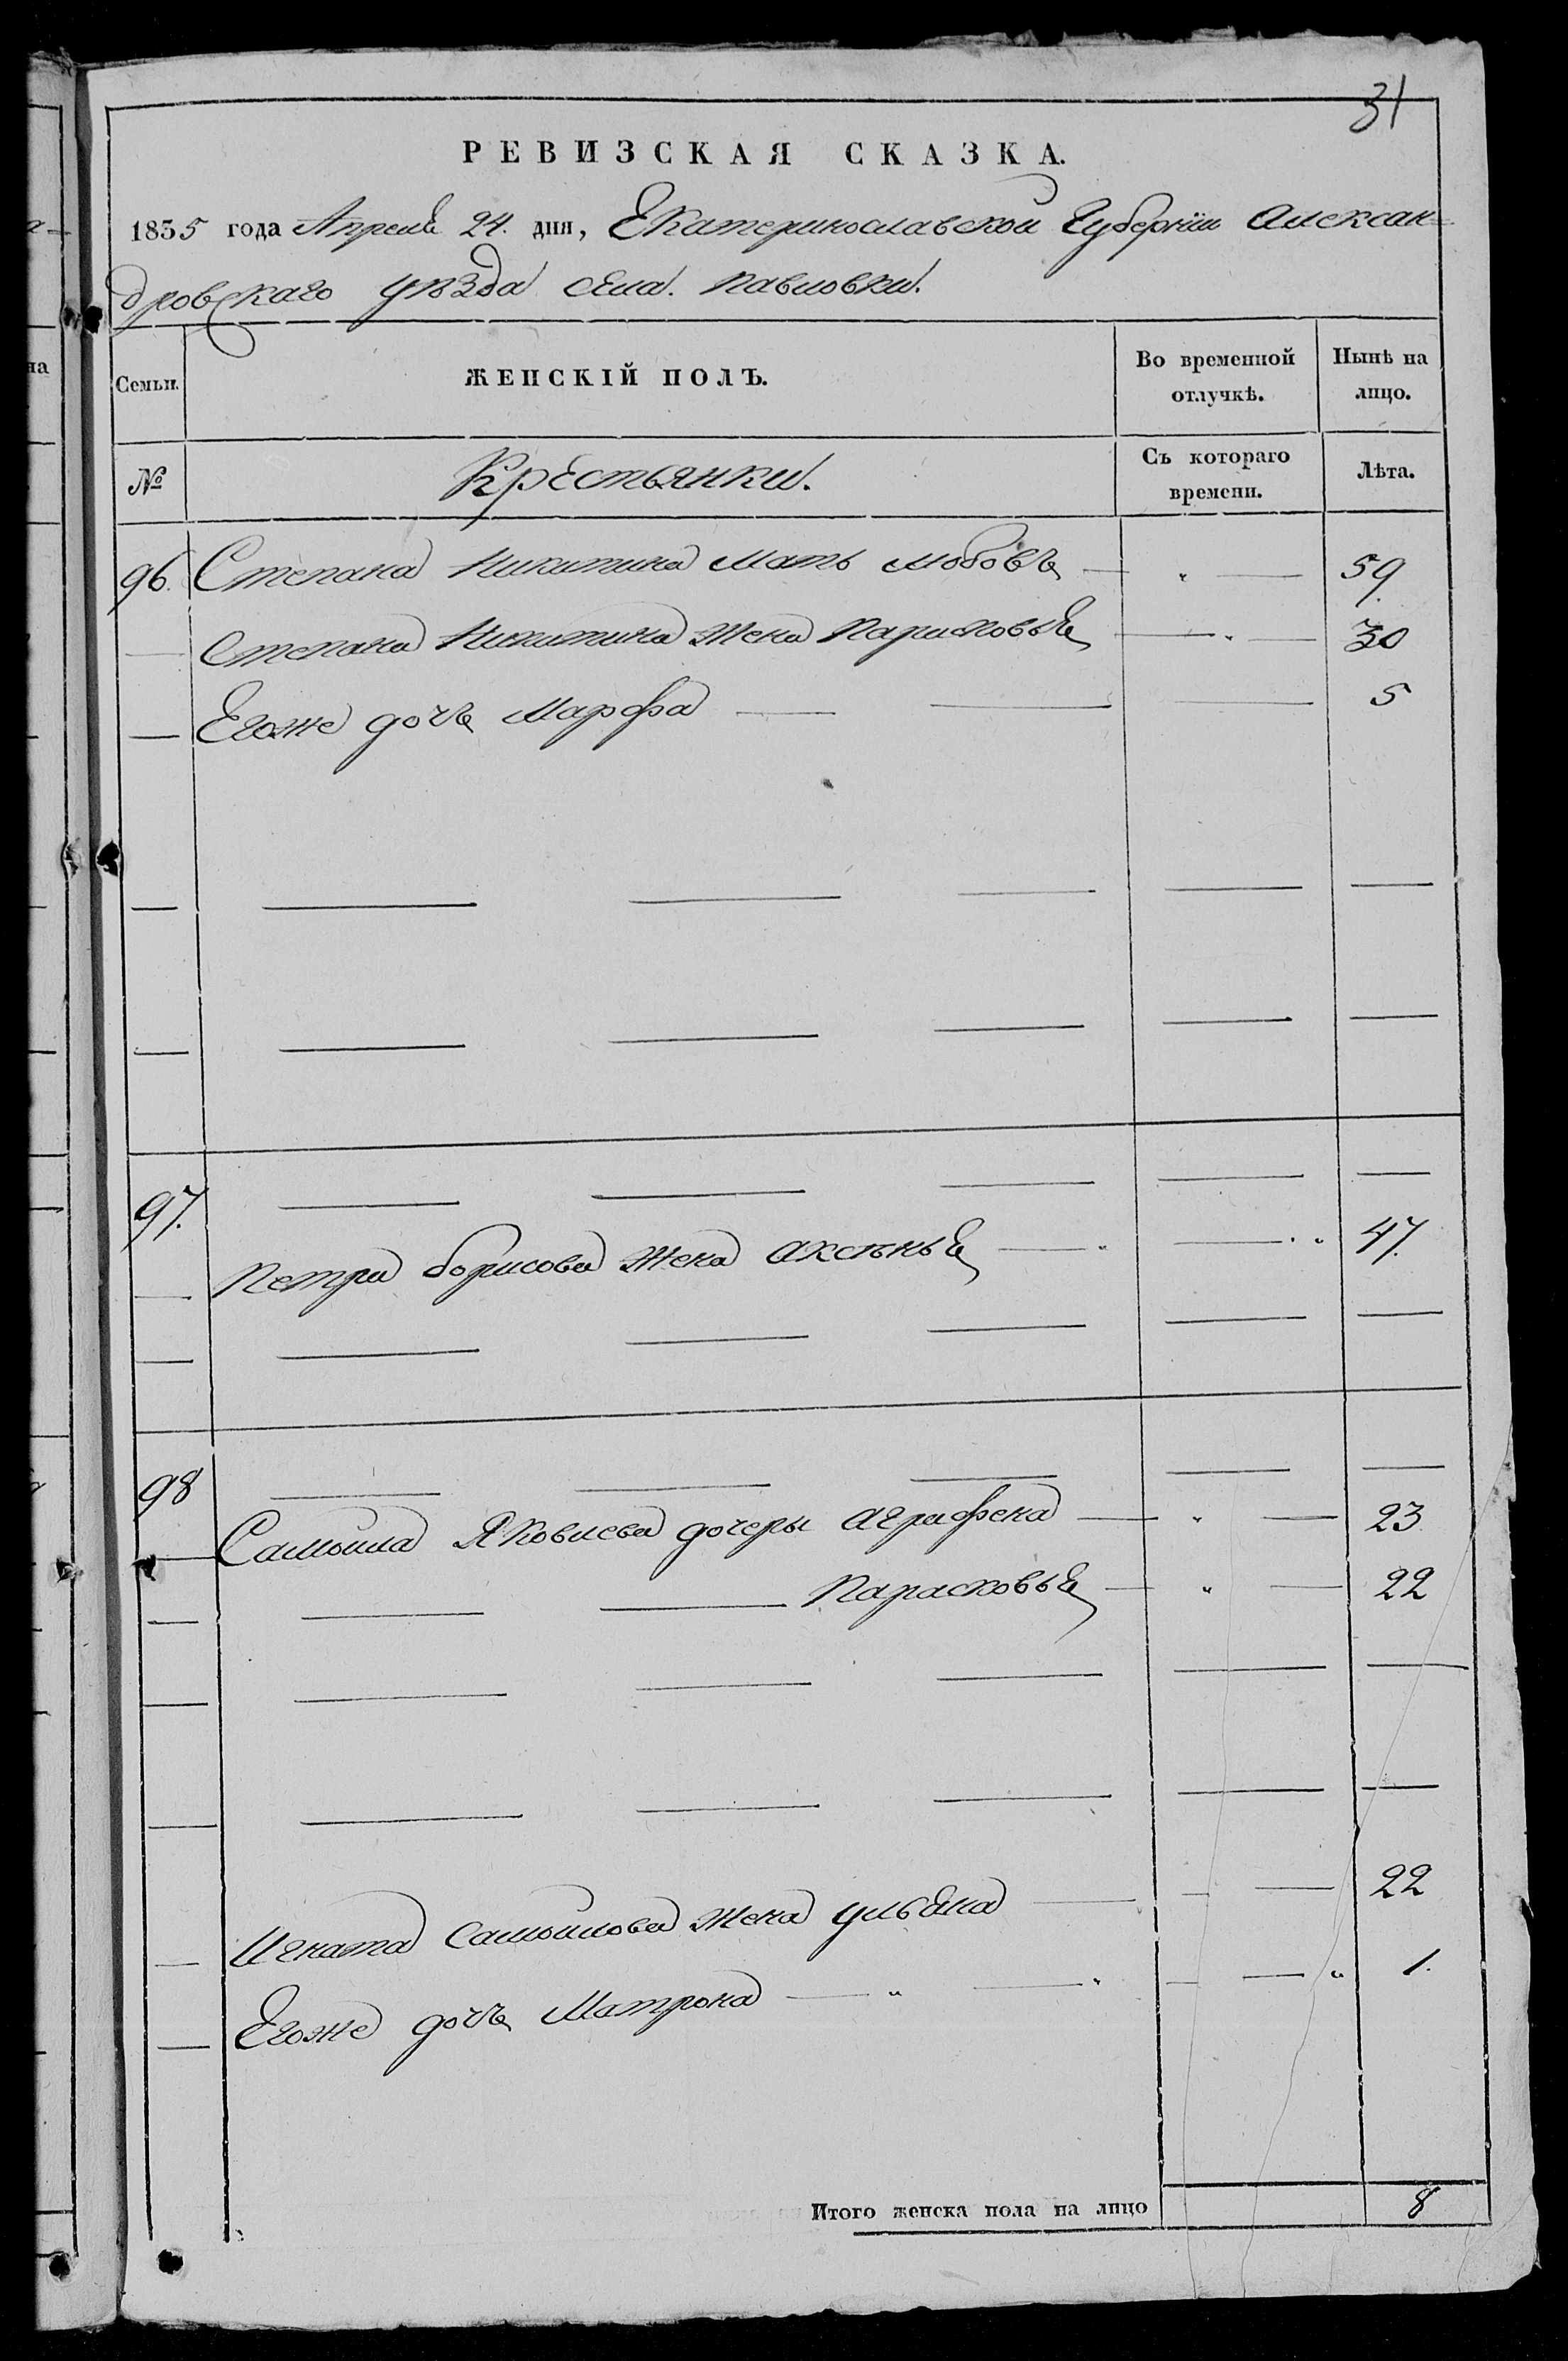 31
РЕВИЗСКАЯ СКАЗКА.
1835 года Апреля 24. дня, Екатеринославской Губернiи Алексан=
дровскаго уѣзда села. Павловки.
Семьи. ЖЕНСКІЙ ПОЛЪ. Во временной отлучкѣ. Нынѣ на лицо.
№ Крестьянки. Съ котораго времени. Лѣта.
96. Степана Никитина мать Любовь — „ — 59.
— Степана Никитина жена Парасковья — „ — 30
— Егоже дочь Марфа — — — 5
— — — — — —
— — — — — —
97. — — — — —
— Петра Борисова жена Аксенья — „ — „ 47.
— — — — — —
98 — — — — —
— Самойла Яковлева дочеры Агрифена — „ — 23.
— — — Парасковья — „ — 22
— — — — — —
— — — — — —
— Игната Самойлова жена Ульяна — — — 22
— Егоже дочь Матрона — „ — „ — — „ 1.
Итого женска пола на лицо 8